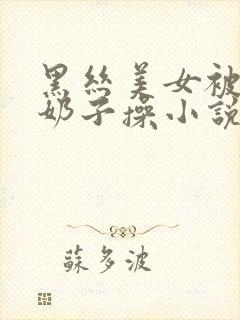 黑丝美女被
奶子操小説
蘇多波